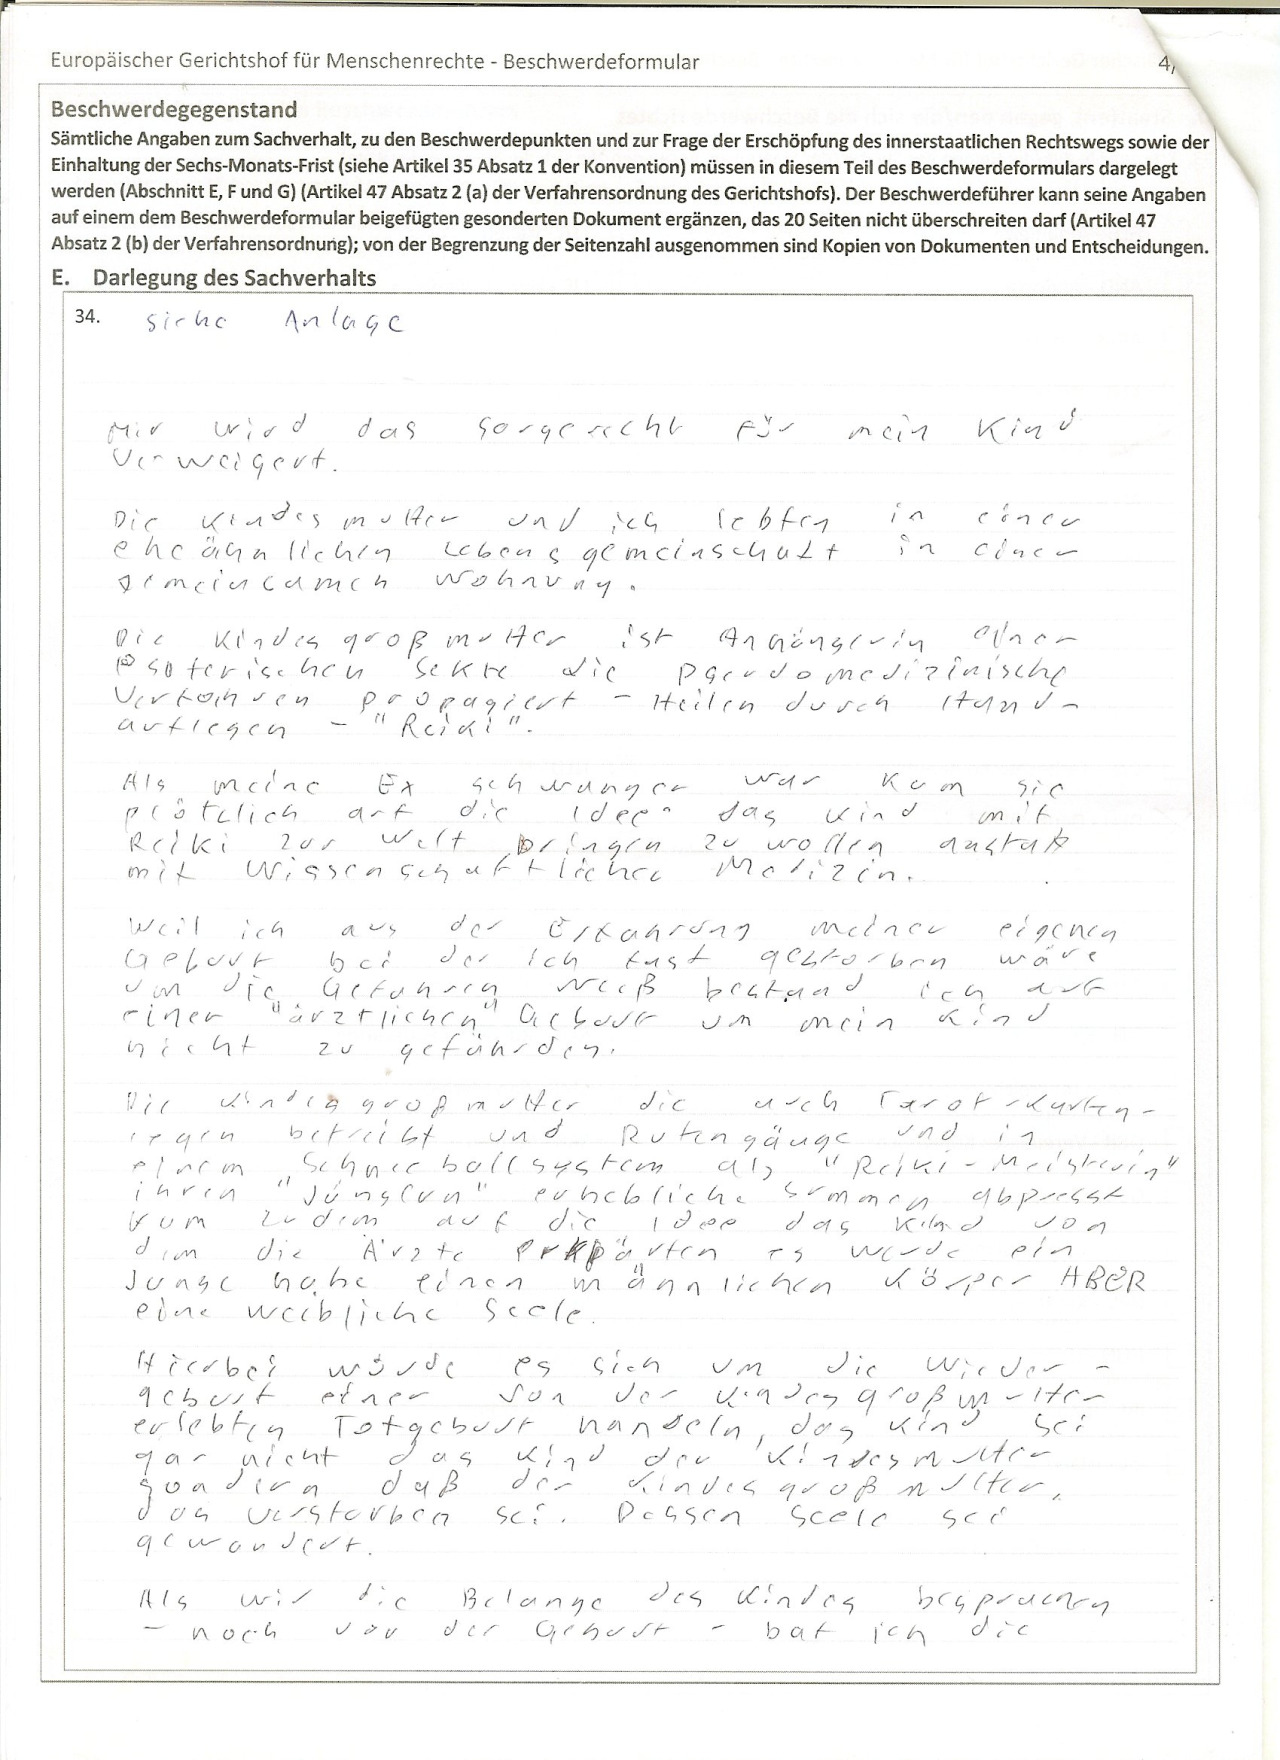 Europäischer Gerichtshof für Menschenrechte - Beschwerdeformular 4/
Beschwerdegegenstand
Sämtliche Angaben zum Sachverhalt, zu den Beschwerdepunkten und zur Frage der Erschöpfung des innerstaatlichen Rechtswegs sowie der
Einhaltung der Sechs-Monats-Frist (siehe Artikel 35 Absatz 1 der Konvention) müssen in diesem Teil des Beschwerdeformulars dargelegt
werden (Abschnitt E, F und G) (Artikel 47 Absatz 2 (a) der Verfahrensordnung des Gerichtshofs). Der Beschwerdeführer kann seine Angaben
auf einem dem Beschwerdeformular beigefügten gesonderten Dokument ergänzen, das 20 Seiten nicht überschreiten darf (Artikel 47
Absatz 2 (b) der Verfahrensordnung); von der Begrenzung der Seitenzahl ausgenommen sind Kopien von Dokumenten und Entscheidungen.
E. Darlegung des Sachverhalts
34. siehe Anlage
Mir wird das Sorgerecht für mein Kind
verweigert.
Die Kindesmutter und ich lebten in einer
eheähnlichen Lebensgemeinschaft in einer
gemeinsamen Wohnung.
Die Kindesgroßmutter ist Anhängerin einer
esoterischen Sekte die pseudomedizinische
Verfahren propagiert - Heilen durch Hand-
auflegen - "Reiki".
Als meine Ex schwanger war kam sie
plötzlich auf die Idee das Kind mit
Reiki zur Welt bringen zu wollen anstatt
mit wissenschaftlicher Medizin.
Weil ich aus der Erfahrung meiner eigenen
Geburt bei der ich fast gestorben wäre
um die Gefahren weiß bestand ich auf
einer "ärztlichen" Geburt um mein Kind
nicht zu gefährden.
Die Kindesgroßmutter die auch Tarot-Karten-
legen betreibt und Rutengänge und in
einem Schneeballsystem als "Reiki-Meisterin"
ihren "Jüngern" erhebliche Summen abpresst
kam zudem auf die Idee das Kind von
dem die Ärzte erklärten es werde ein
Junge habe einen männlichen Körper ABER
eine weibliche Seele.
Hierbei würde es sich um die Wieder-
geburt einer von der Kindesgroßmutter
erlebten Totgeburt handeln, das Kind sei
gar nicht das Kind der Kindesmutter
sondern daß der Kindesgroßmutter,
das verstorben sei. Dessen Seele sei
gewandert.
Als wir die Belange des Kindes besprachen
- noch vor der Geburt - bat ich die